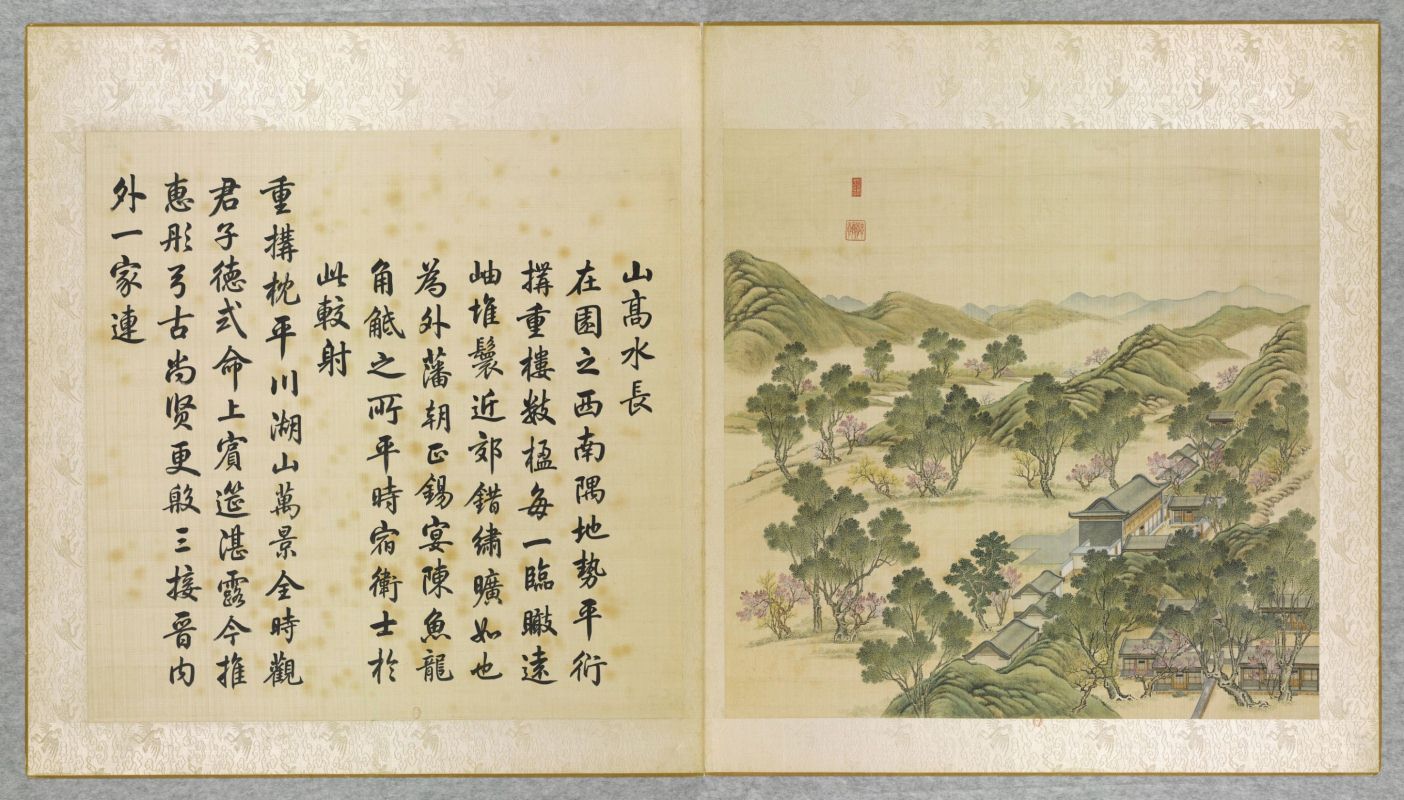 山髙水長
在園之西南隅地勢平衍
搆重樓數楹每一臨瞰遠
岫堆鬟近郊錯繡曠如也
為外藩朝正錫宴陳魚龍
角觝之所平時宿衛士於
此較射
重搆枕平川湖山萬景全時觀
君子德式命上賓筵湛露今推
惠彤弓古尚賢更殷三接晉内
外一家連